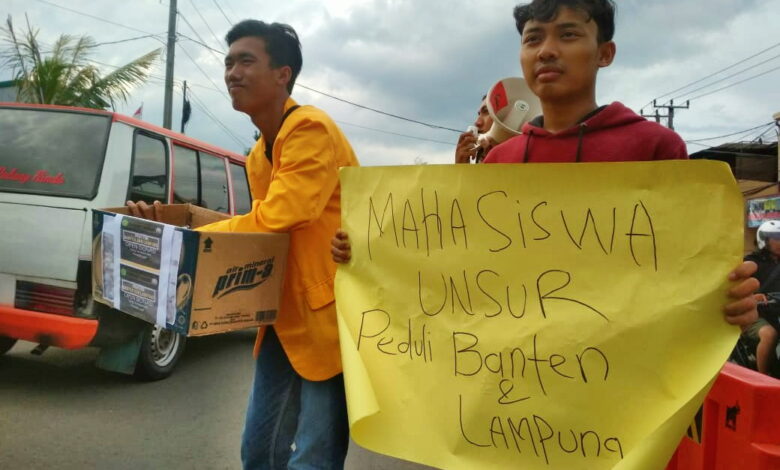 MAHASISWA
UNSUR
Peduli Banten
&
LAMPUNG
air mineral
prim-a